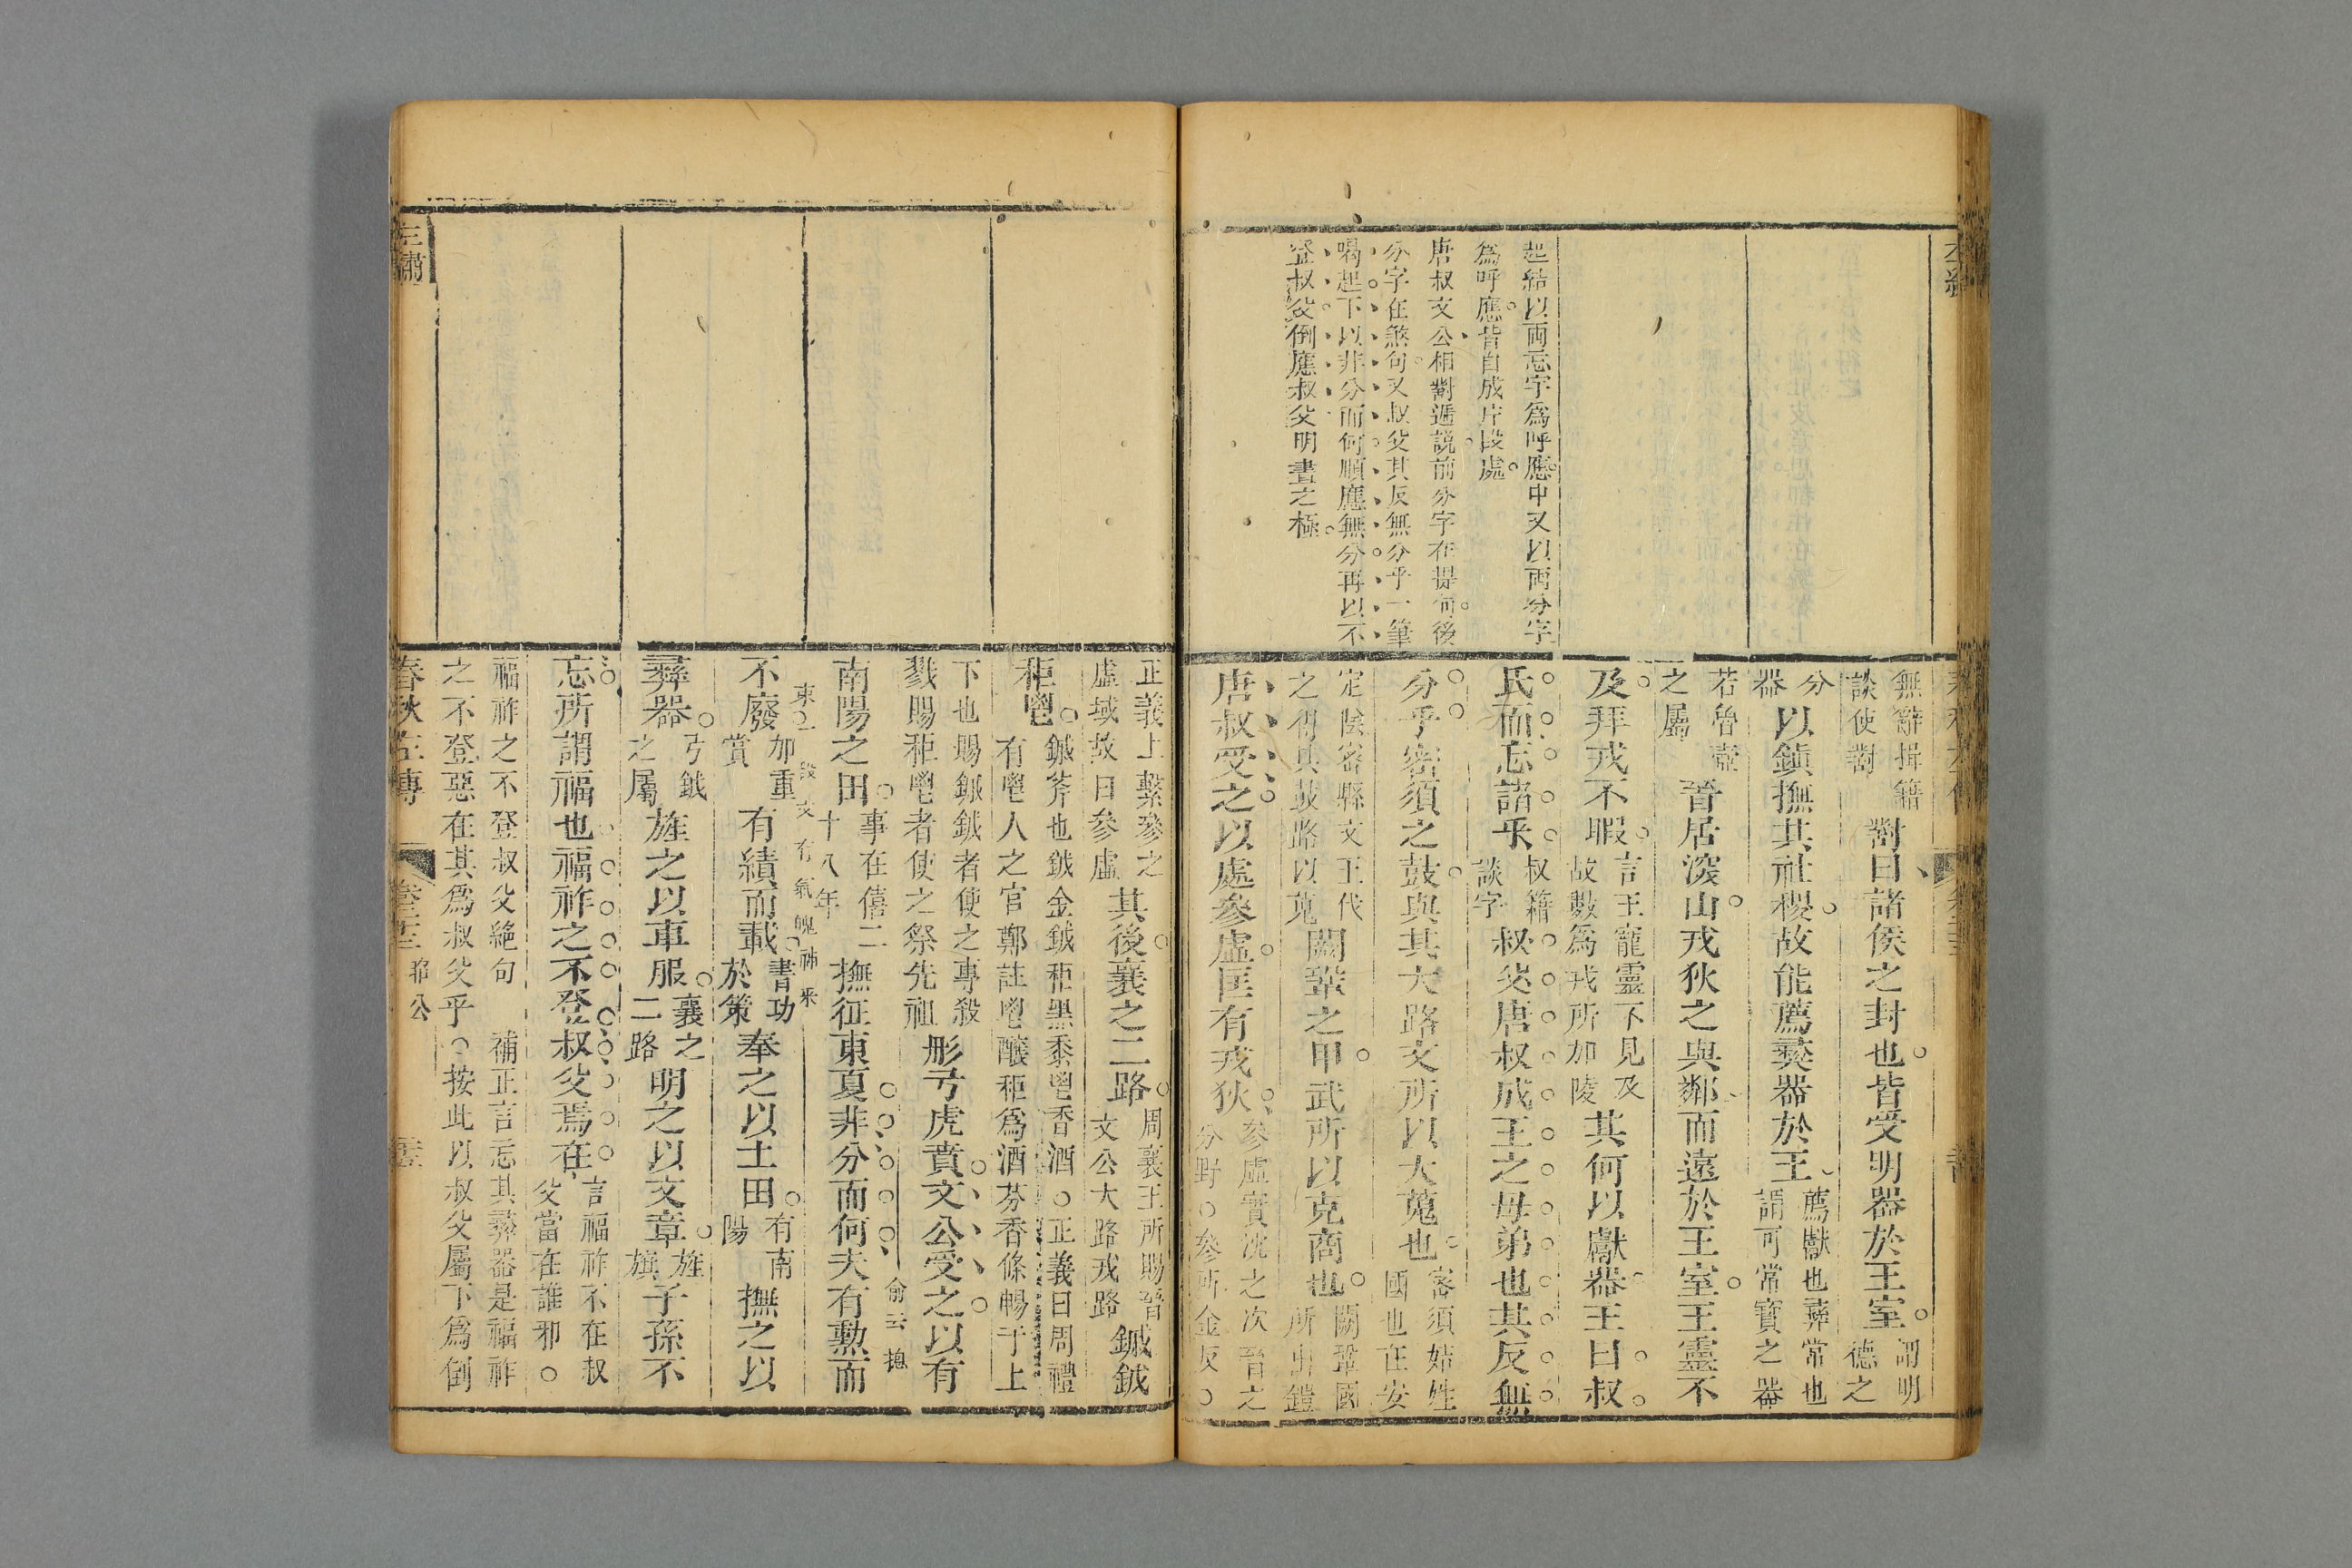 起結以兩忘字爲呼應中又以兩分字
爲呼應皆自成片段處
唐叔文公相對遞說前分字在提句後
分字在煞句又叔父其反無分乎一筆
喝起下以非分而何順應無分再以不
登叔父倒應叔父明晝之極
無辭揖籍
談使對
對曰諸侯之封也皆受明器於王室
謂明
德之
分
器
以鎮撫其社稷故能薦彝器於王
薦獻也彝常也
謂可常寶之器
若魯壺
之屬
晉居深山戎狄之與鄰而遠於王室王靈不
及拜戎不暇
言王寵靈不見及
故數爲戎所加陵
其何以獻器王曰叔
氏而忘諸乎
叔籍
談字
叔父唐叔成王之母弟也其反無
分乎密須之鼓與其大路文所以大蒐也
密須姞姓
國也在安
定陰密縣文王伐
之得其鼓路以蒐
闕鞏之甲武所以克商也
闕鞏國
所出鎧
唐叔受之以處參虛匡有戎狄
參虛實沈之次晉之
分野○參所金反○
正義上繫參之
虛域故曰參虛
其後襄之二路
周襄王所賜晉
文公大路戎路
鏚鉞
秬鬯
鏚斧也鉞金鉞秬黑黍鬯香酒○正義曰周禮
有鬯人之官鄭註鬯釀秬爲酒芬香條暢于上
下也賜鏚鉞者使之專殺
戮賜秬鬯者使之祭先祖
彤弓虎賁文公受之以有
南陽之田
事在僖二
十八年
撫征東夏非分而何夫有勳而
俞云摠
束上
段文有氣魄神來
不廢
加重
賞
有績而載
書功
於策
奉之以土田
有南
陽
撫之以
彝器
弓鉞
之屬
旌之以車服
襄之
二路
明之以文章
旌
旗
子孫不
忘所謂福也福祚之不登叔父焉在
言福祚不在叔
父當在誰邪○
福祚之不登叔父絕句
之不登惡在其爲叔父乎○按此以叔父屬下爲倒
補正言忘其彝器是福祚
春秋左傳
昭公